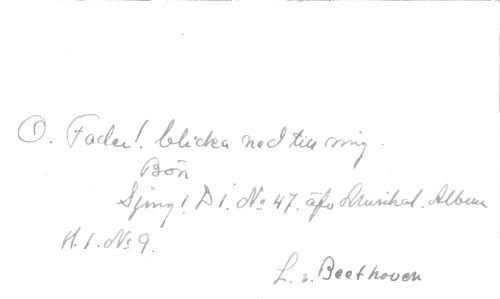 O. Fader! blicka ned till mig.
Bön
Sjung! D 1. No 47. äfv Musikal. Album
H. 1. No 9.
L. v. Beethoven